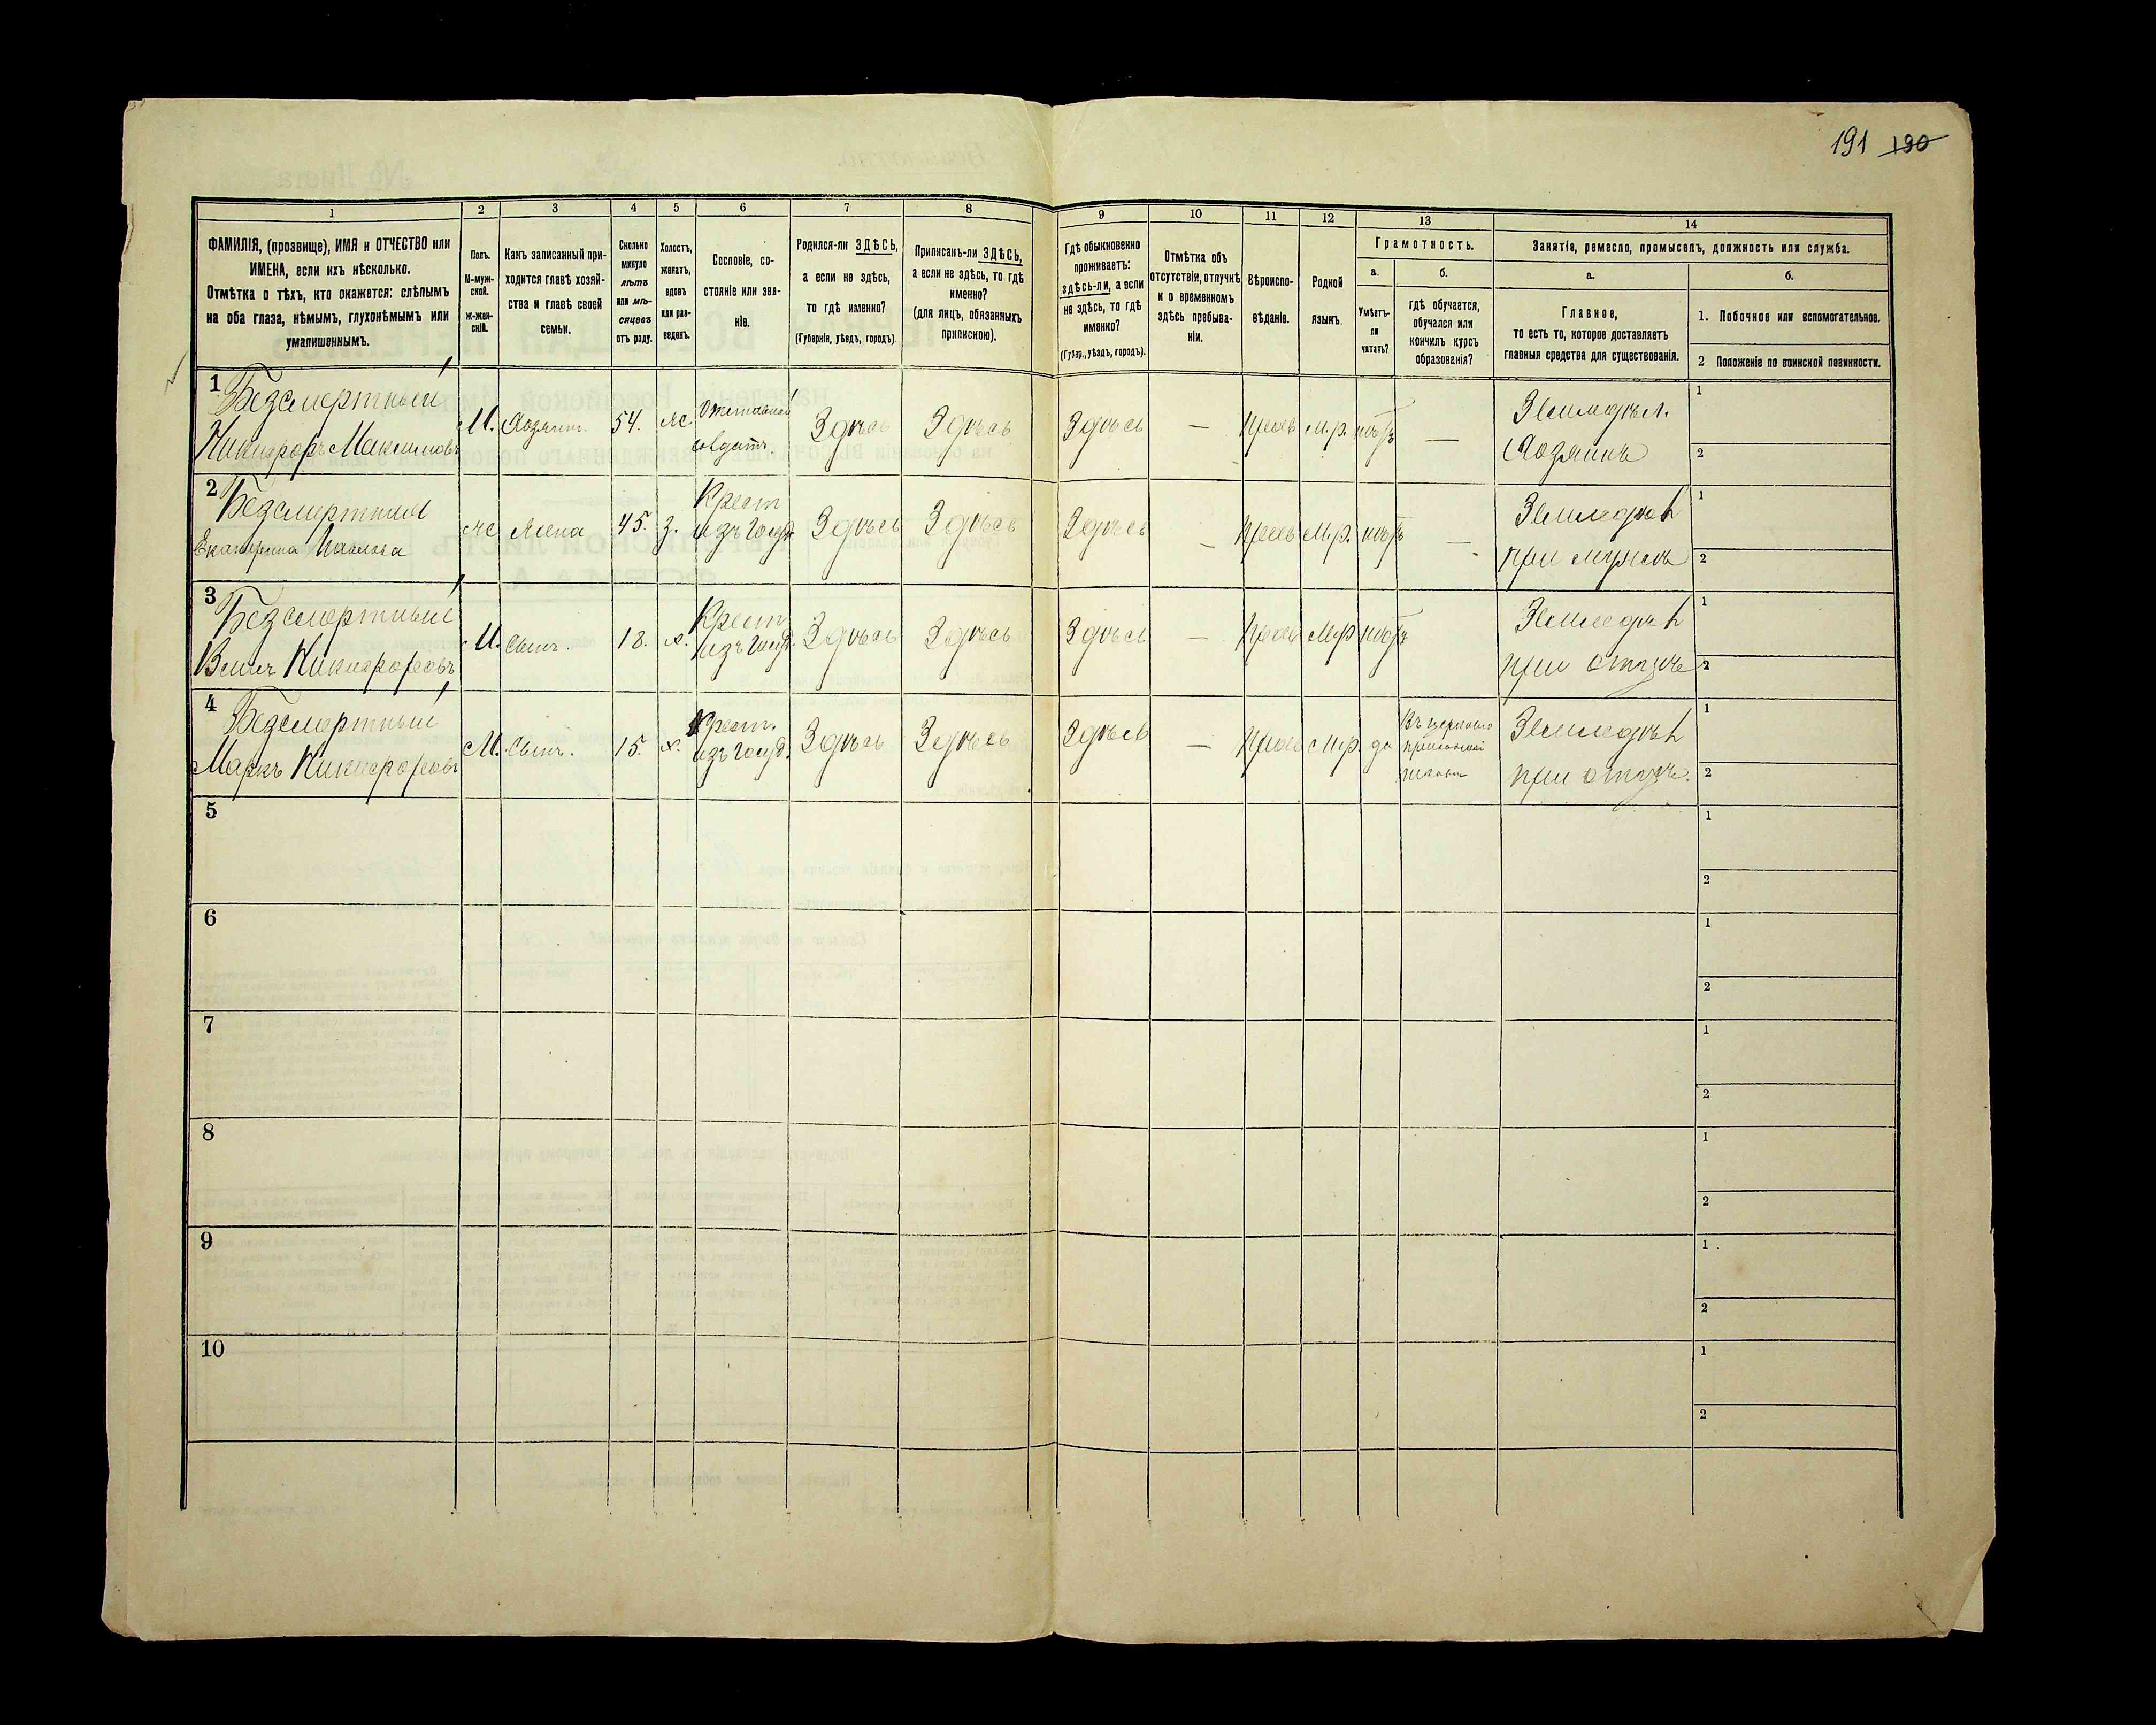 191 190
1 2 3 4 5 6 7 8 9 10 11 12 13 14
ФАМИЛІЯ, (прозвище), ИМЯ и ОТЧЕСТВО или
ИМЕНА, если ихъ нѣсколько.
Отмѣтка о тѣхъ, кто окажется: слѣпымъ
на оба глаза, нѣмымъ, глухонѣмымъ или
умалишеннымъ.
Полъ.
М-муж-
ской.
Ж-жен-
скій.
Какъ записанный при-
ходится главѣ хозяй-
ства и главѣ своей
семьи.
Сколько
минуло
лѣтъ
или мѣ-
сяцевъ
отъ роду.
Холостъ,
женатъ,
вдовъ
или раз-
веденъ.
Сословіе, со-
стояніе или зва-
ніе.
Родился-ли ЗДѢСЬ,
а если не здѣсь,
то гдѣ именно?
(Губернія, уѣздъ, городъ).
Приписанъ-ли ЗДѢСЬ,
а если не здѣсь, то гдѣ
именно?
(для лицъ, обязанныхъ
припискою).
Гдѣ обыкновенно
проживаетъ:
здѣсь-ли, а если
не здѣсь, то гдѣ
именно?
(Губер., уѣздъ, городъ).
Отмѣтка объ
отсутствіи, отлучкѣ
и о временномъ
здѣсь пребыва-
ніи.
Вѣроиспо-
вѣданіе.
Родной
языкъ.
Грамотность.
а.
Умѣетъ-
ли
читать?
б.
гдѣ обучается,
обучался или
кончилъ курсъ
образованія?
Занятіе, ремесло, промыселъ, должность или служба.
а.
Главное,
то есть то, которое доставляетъ
главныя средства для существованія.
б.
1. Побочное или вспомогательное.
2 Положеніе по воинской повинности.
1 Безсмертный
Никифоръ Максимовъ
М. Хозяинъ. 54. ж. Отставной
солдатъ.
Здѣсь Здѣсь Здѣсь — Прав М.р. нѣтъ — Земледѣл.
Хозяинъ
1
2
2 Безсмертная
Екатерина Павлова
ж Жена 45. з. Крест
изъ госуд.
Здѣсь Здѣсь Здѣсь — Прав М.р. нѣтъ — Земледѣл
при мужѣ
1
2
3 Безсмертный
Никифоровъ
М. Сынъ. 18. х. Крест
изъ госуд.
Здѣсь Здѣсь Здѣсь — Прав М.р нѣтъ Земледѣл
при отцѣ
1
2
4 Безсмертный
Маркъ Никифоровъ
М. Сынъ. 15. х. Крест.
изъ госуд.
Здѣсь Здѣсь Здѣсь — Прав М.р. да Въ церковно
приходской
школѣ
Земледѣл
при отцѣ.
1
2
5
1
2
6
1
2
7
1
2
8
1
2
9
1
2
10
1
2